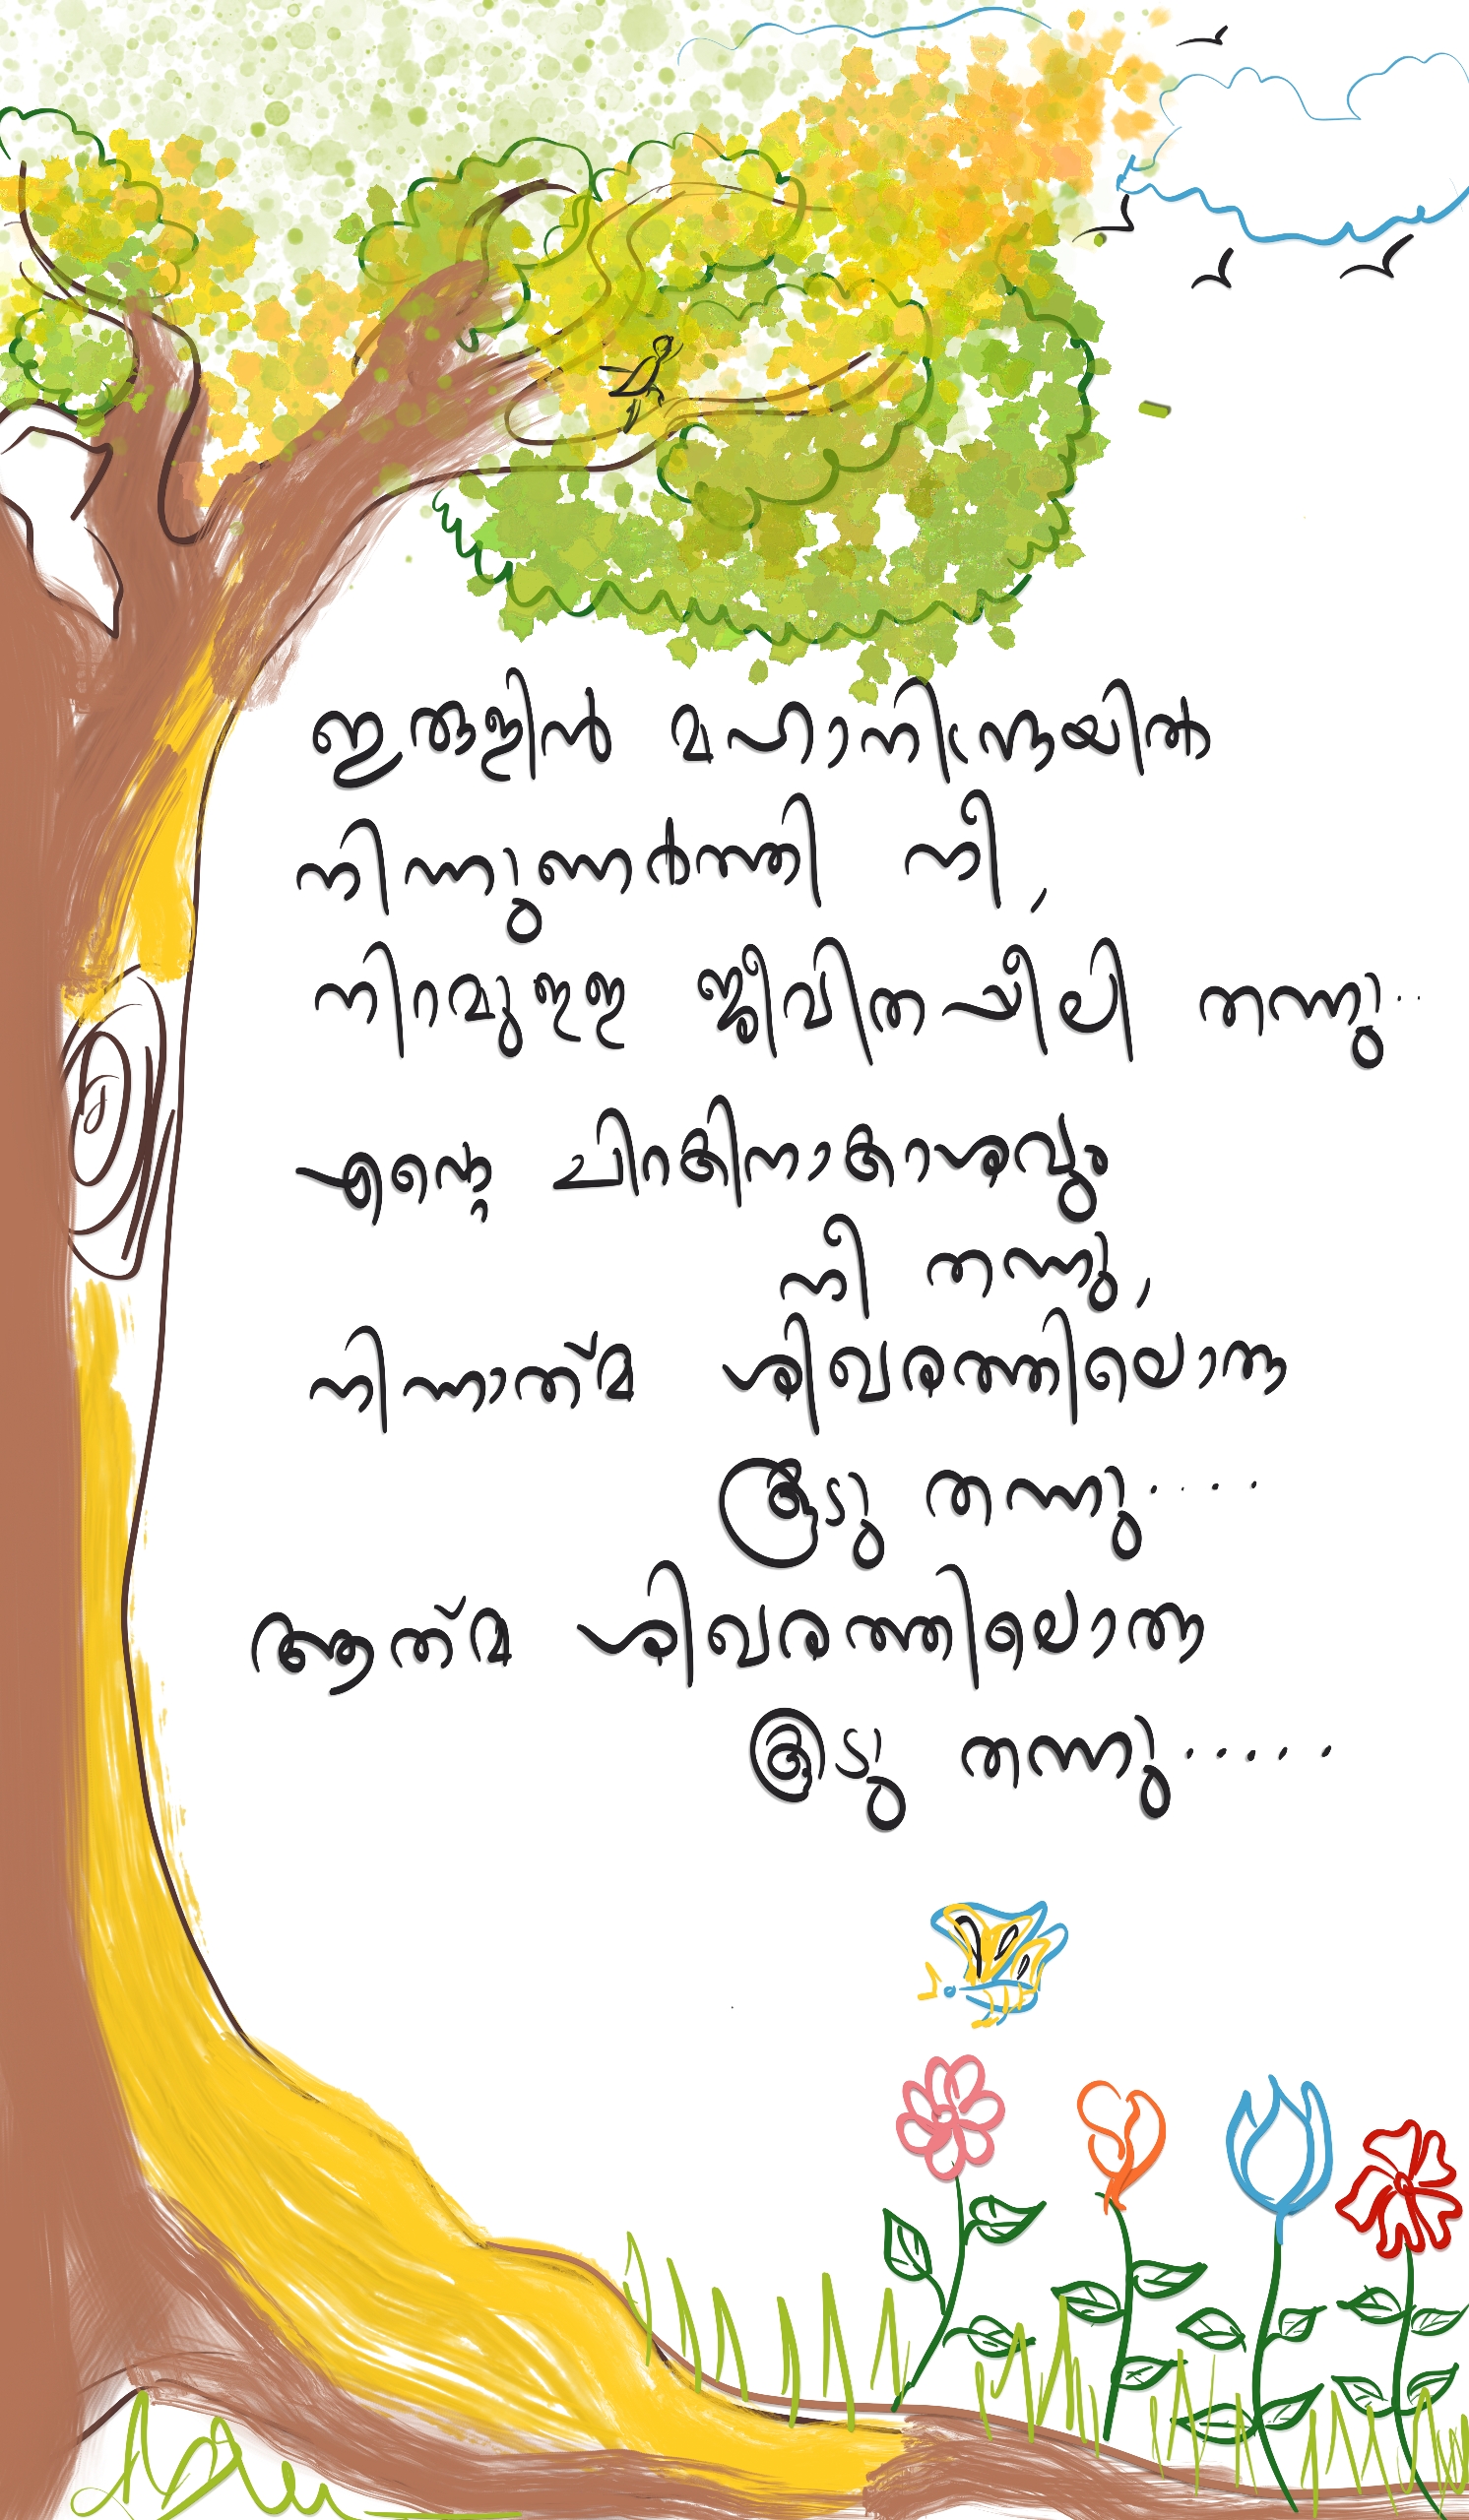 ഇരുളിൻ മഹാനിദ്രയിൽ
നിന്നുണർത്തി നീ,
നിറമുള്ള ജീവിതപ്പീലി തന്നു..
എന്റെ ചിറകിനാകാശവും
നീ തന്നു,
നിന്നാത്മ ശിഖരത്തിലൊരു
കൂടു തന്നു....
ആത്മ ശിഖരത്തിലൊരു
കൂടു തന്നു.....